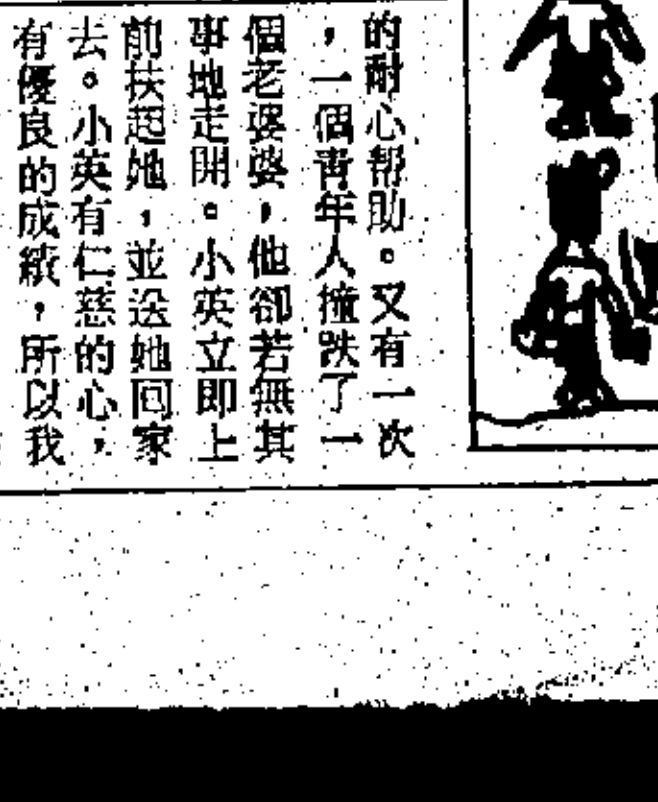 的耐心帮助。又有一次
，一個青年人撞跌了一
個老婆婆，他卻若無其
事地走開。小英立即上
前扶起她，並送她回家
去。小英有仁慈的心，
有優良的成績，所以我